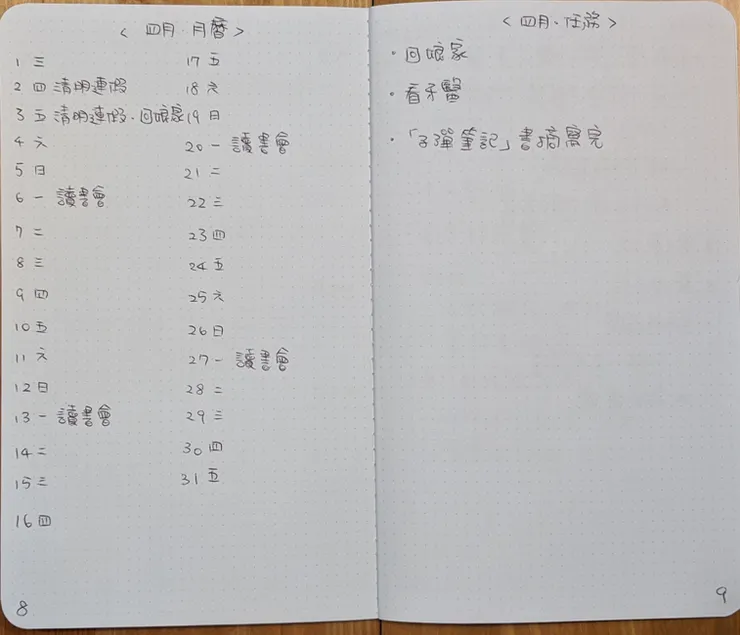 < 四月·月曆 >
1 三
2 四 清明連假
3 五 清明連假·回娘家
4 六
5 日
6 一 讀書會
7 二
8 三
9 四
10 五
11 六
12 日
13 一 讀書會
14 二
15 三
16 四
17 五
18 六
19 日
20 一 讀書會
21 二
22 三
23 四
24 五
25 六
26 日
27 一 讀書會
28 二
29 三
30 四
31 五
8
< 四月·任務 >
· 回娘家
· 看牙醫
· 「子彈筆記」書摘寫完
9